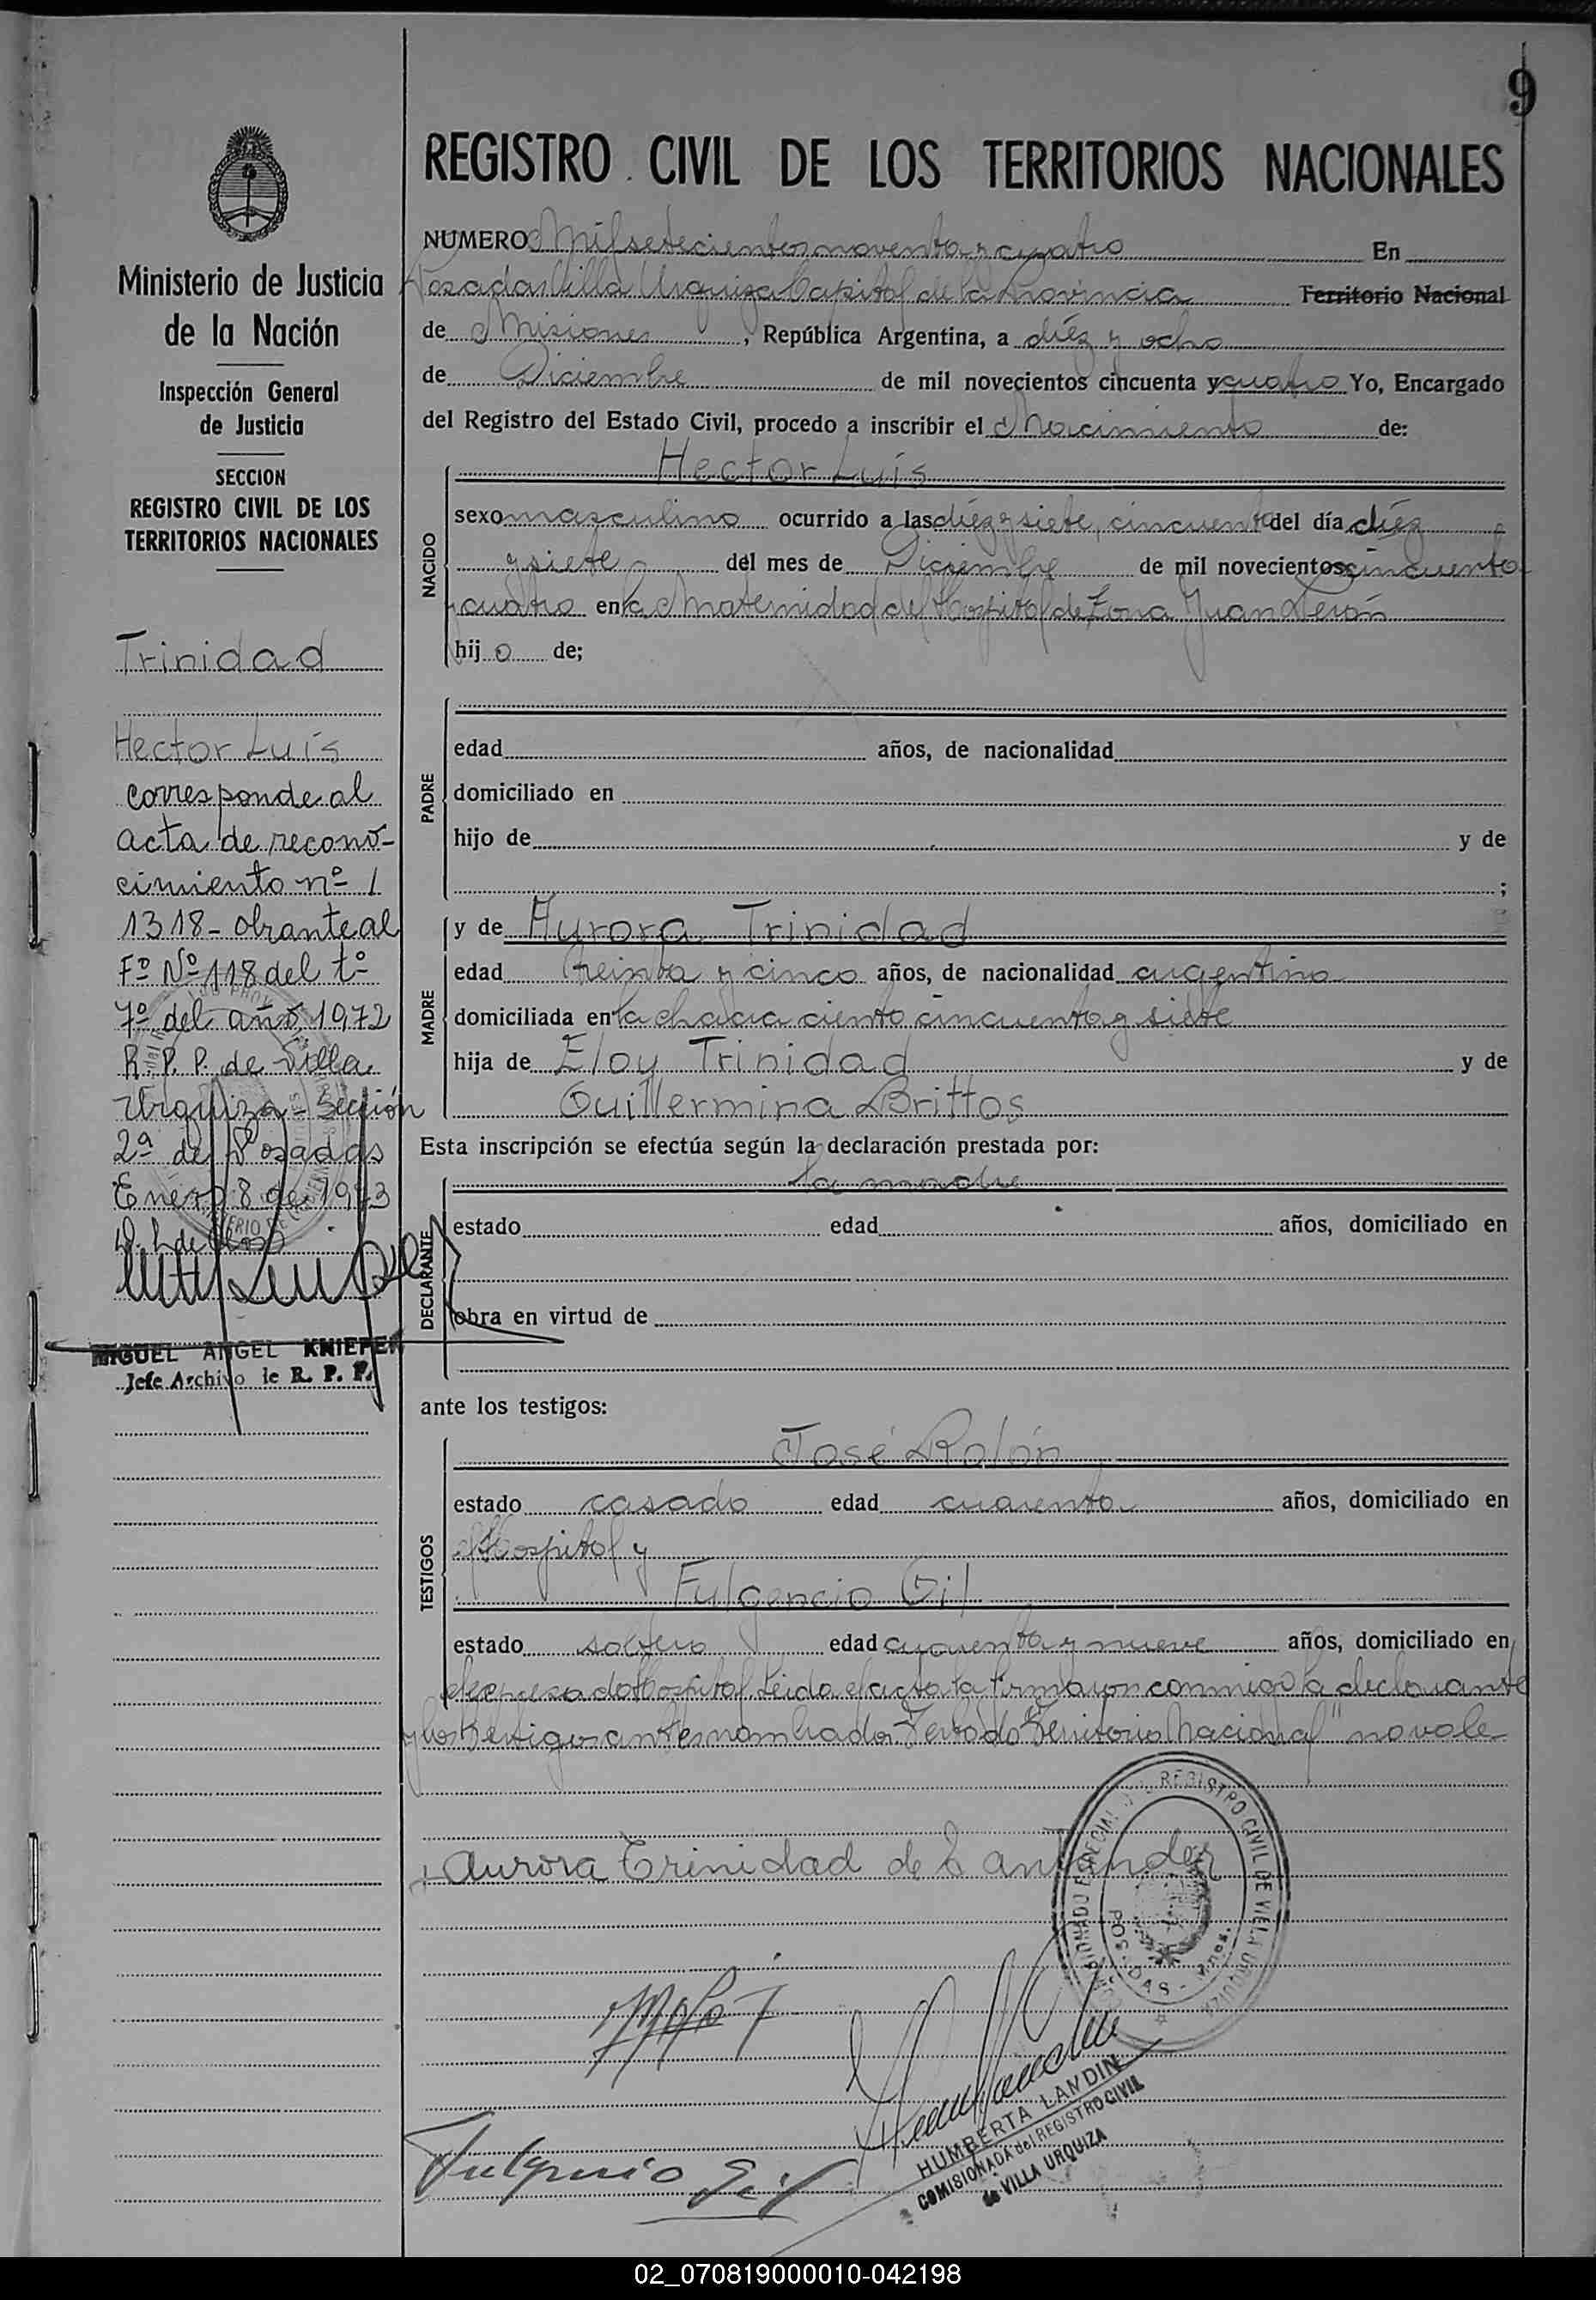 9
Ministerio de Justicia
de la Nación
Inspección General
de Justicia
SECCION
REGISTRO CIVIL DE LOS
TERRITORIOS NACIONALES
Trinidad
Hector Luis
corresponde al
acta de recono-
cimiento nº /
1318 - obrante al
Fº Nº 118 del tº
7º del año 1972
R. P. P. de Villa
Urquiza - Sección
2ª de Posadas
Enero 8 de 1973
MIGUEL ANGEL KNIEPER
Jefe Archivo de R. P. P.
REGISTRO CIVIL DE LOS TERRITORIOS NACIONALES
NUMERO Mil setecientos noventa y cuatro En
Posadas Villa Urquiza Capital de la Provincia Territorio Nacional
de Misiones, República Argentina, a diéz y ocho
de Diciembre de mil novecientos cincuenta y cuatro Yo, Encargado
del Registro del Estado Civil, procedo a inscribir el Nacimiento de:
NACIDO
Hector Luis
sexo masculino ocurrido a las diéz y siete, cincuenta del día diéz
y siete del mes de Diciembre de mil novecientos cincuenta
y cuatro en la Maternidad del Hospital de Zona Juan Perón
hij o de;
PADRE
edad años, de nacionalidad
domiciliado en
hijo de y de
;
MADRE
y de Aurora Trinidad
edad treinta y cinco años, de nacionalidad argentina
domiciliada en la chacra ciento cincuenta y siete
hija de Eloy Trinidad y de
Guillermina Brittos
Esta inscripción se efectúa según la declaración prestada por:
DECLARANTE
la madre
estado edad años, domiciliado en
obra en virtud de
ante los testigos:
TESTIGOS
José Rolón
estado casado edad cuarenta años, domiciliado en
el Hospital y
Fulgencio Gil
estado soltero edad cuarenta y nueve años, domiciliado en
el expresado Hospital. Leida el acta la firmaron conmigo la declarante
y los testigos antes nombrados. Testado "Territorio Nacional" no vale
Aurora Trinidad de Santander
REGISTRO CIVIL DE VILLA URQUIZA
POSADAS
Fulgencio Gil
HUMBERTA LANDIN
COMISIONADA del REGISTRO CIVIL
de VILLA URQUIZA
02_070819000010-042198